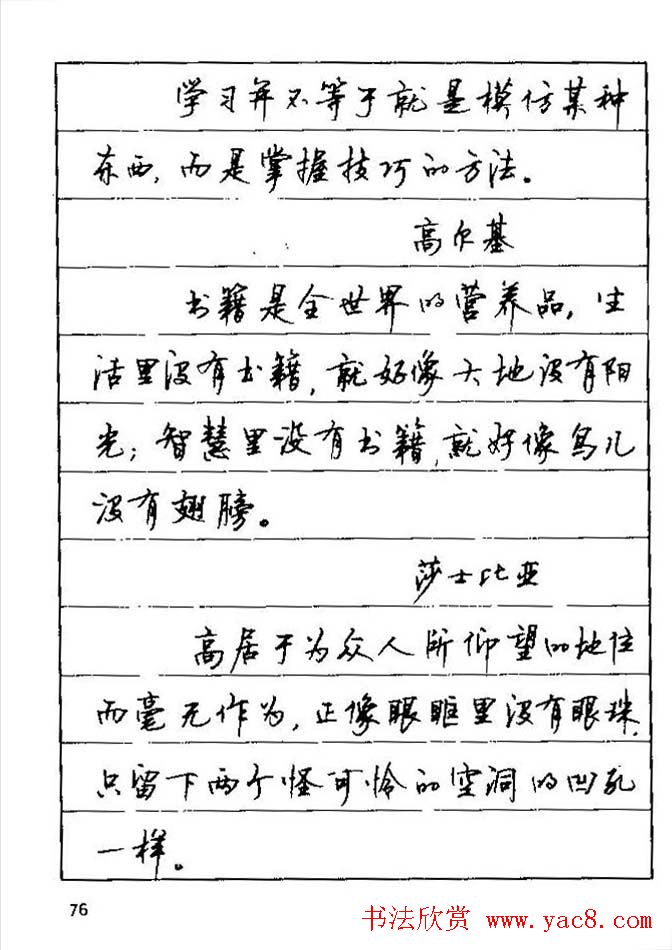 学习并不等于就是模仿某种
东西,而是掌握技巧的方法。
高尔基
书籍是全世界的营养品,生
活里没有书籍,就好像大地没有阳
光;智慧里没有书籍,就好像鸟儿
没有翅膀。
莎士比亚
高居于为众人所仰望的地位
而毫无作为,正像眼眶里没有眼珠,
只留下两个怪可怜的空洞的凹孔
一样。
76
书法欣赏 www.yac8.com